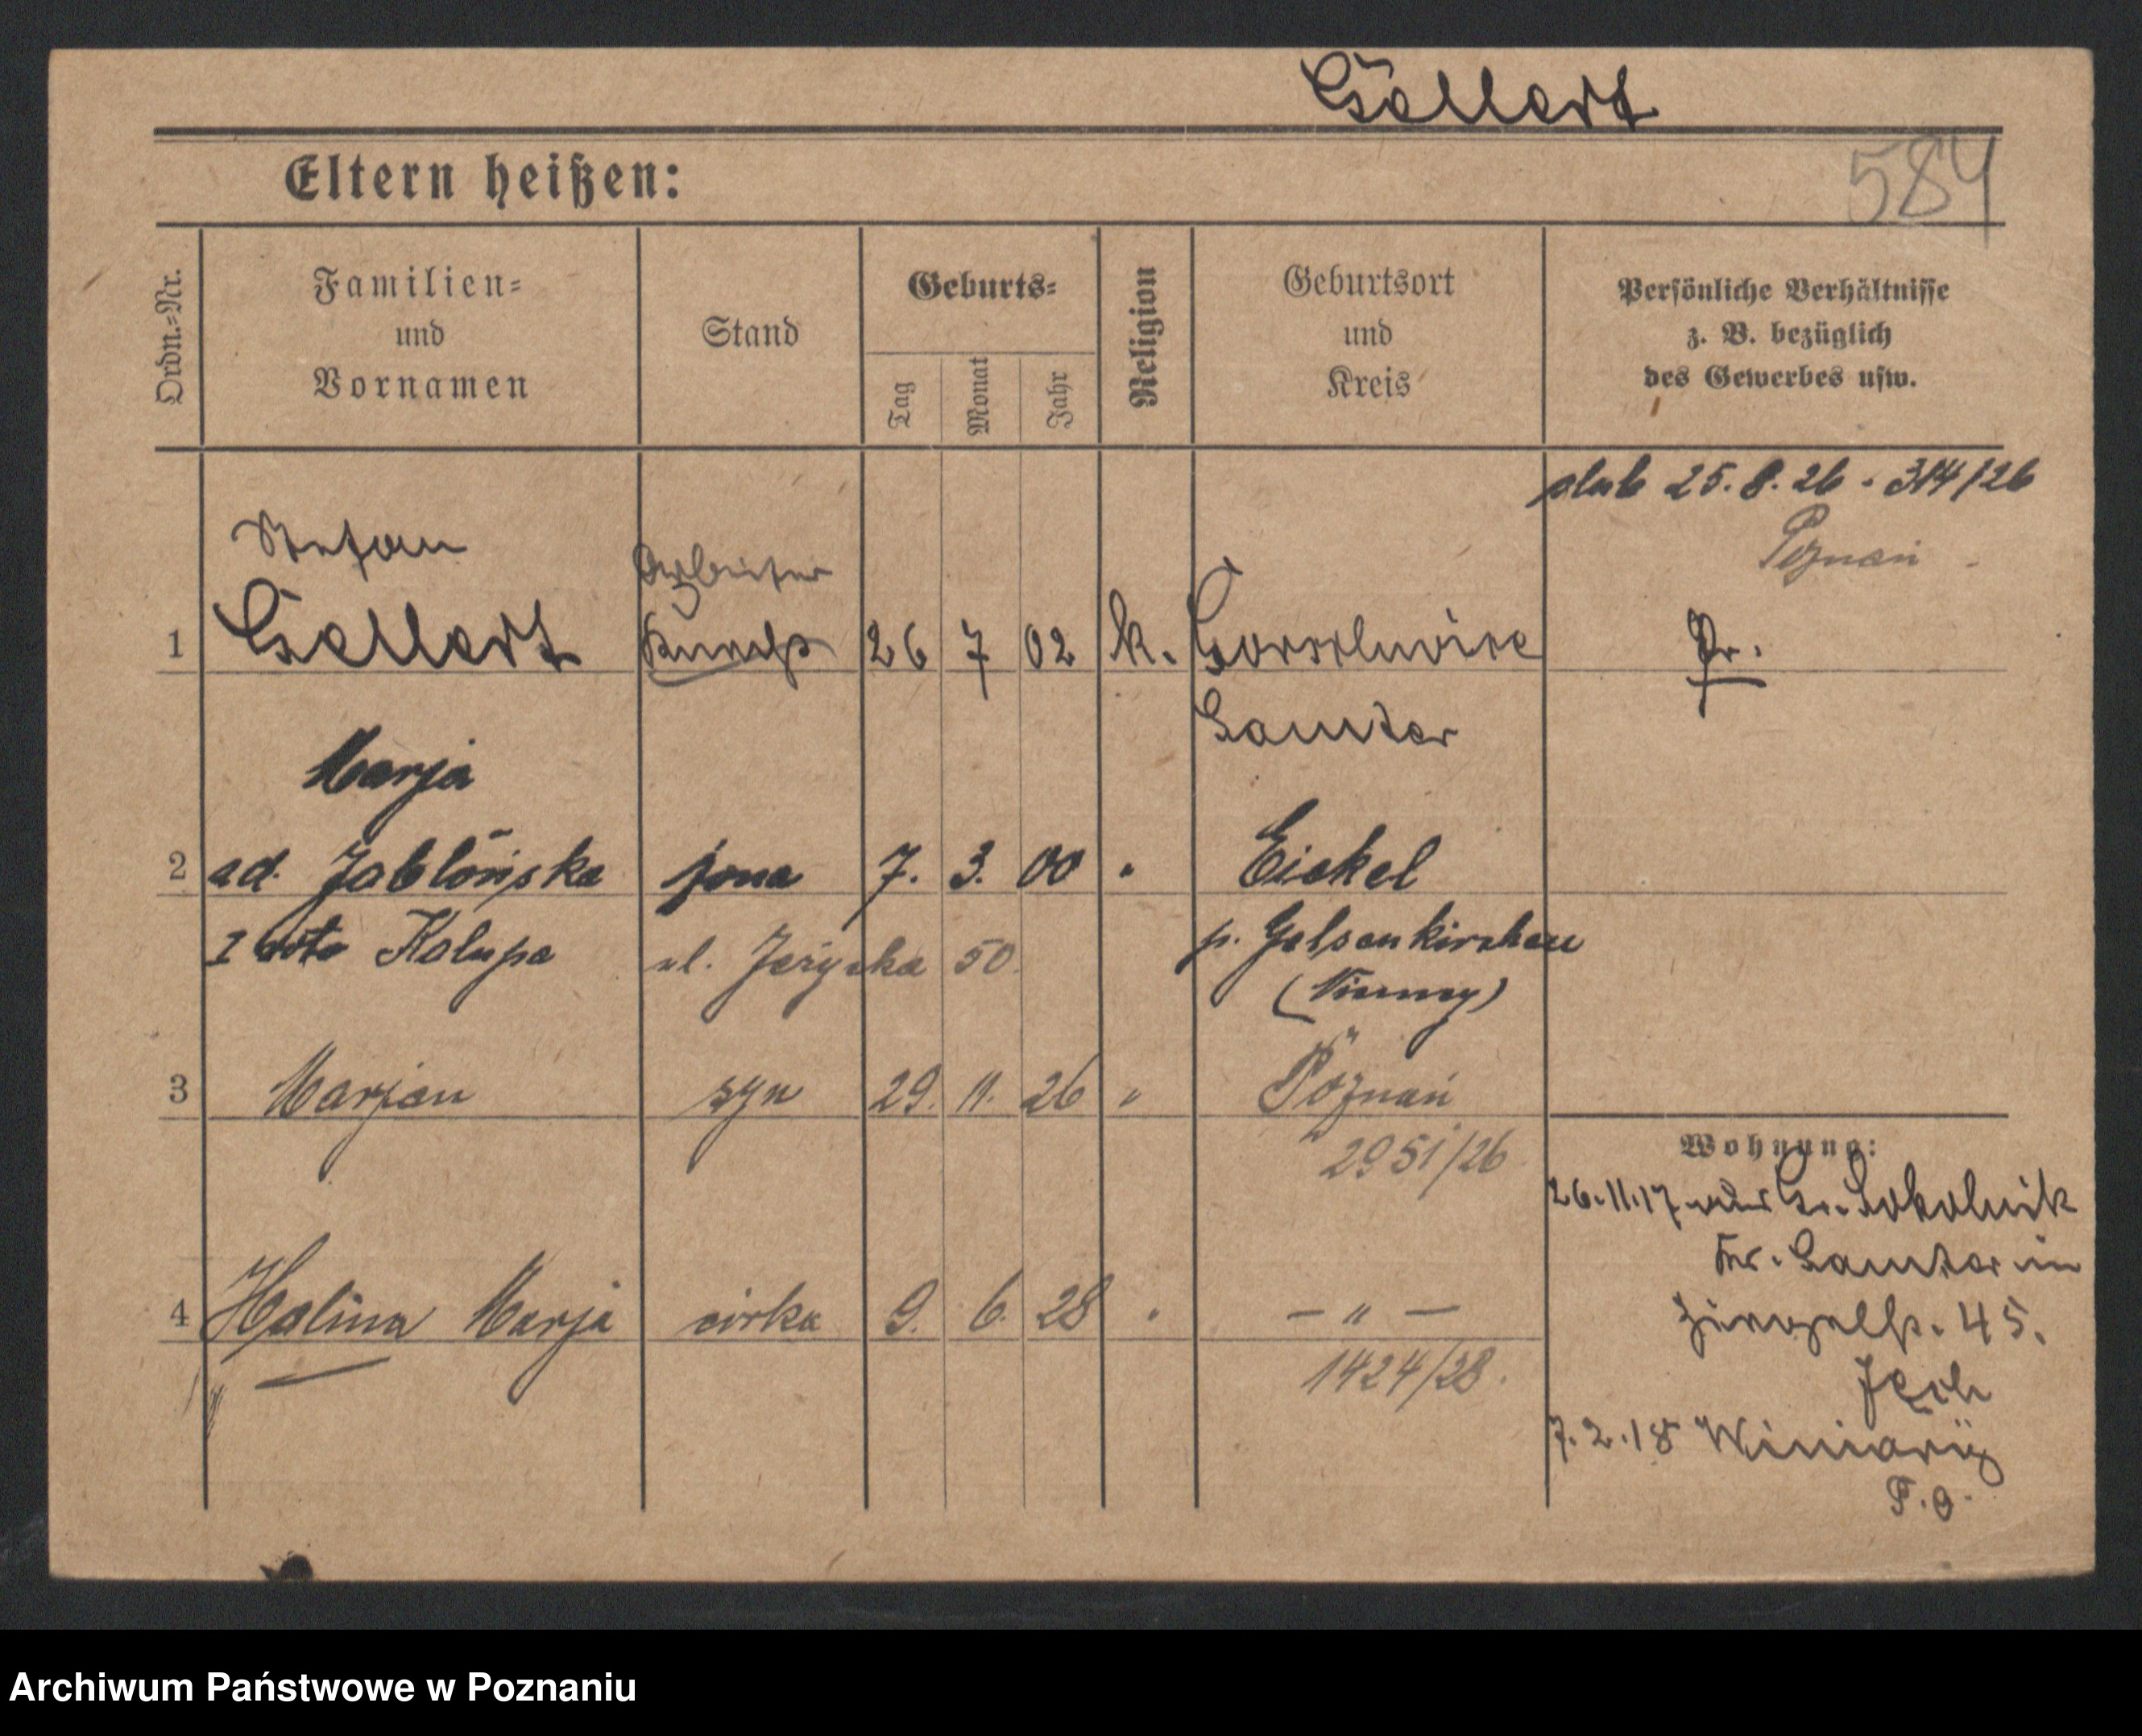 Göllert
584
Eltern heißen:
Ordn.-Nr.
Familien-
und
Vornamen
Stand
Geburts-
Tag
Monat
Jahr
Religion
Geburtsort
und
Kreis
Persönliche Verhältnisse
z. B. bezüglich
des Gewerbes usw.
ślub 25.8.26 . 314/26
Poznań
Stefan
Arbeiter
1 Göllert 26 7 02 k. Pr.
Samter
Marja
2 zd. Jabłońska żona 7. 3. 00 " Eickel
I voto Kałupa ul. Jeżycka 50 p. Gelsenkirchen
(Niemcy)
3 Marjan syn 29. 11. 26 " Poznań
2951/26
4 Halina Marja córka 9. 6. 28 " — " —
1424/28.
Wohnung:
26.11.17 Gr. Sokolnik
Kr. Samter in
45.
7.2.18 Winiary
Archiwum Państwowe w Poznaniu